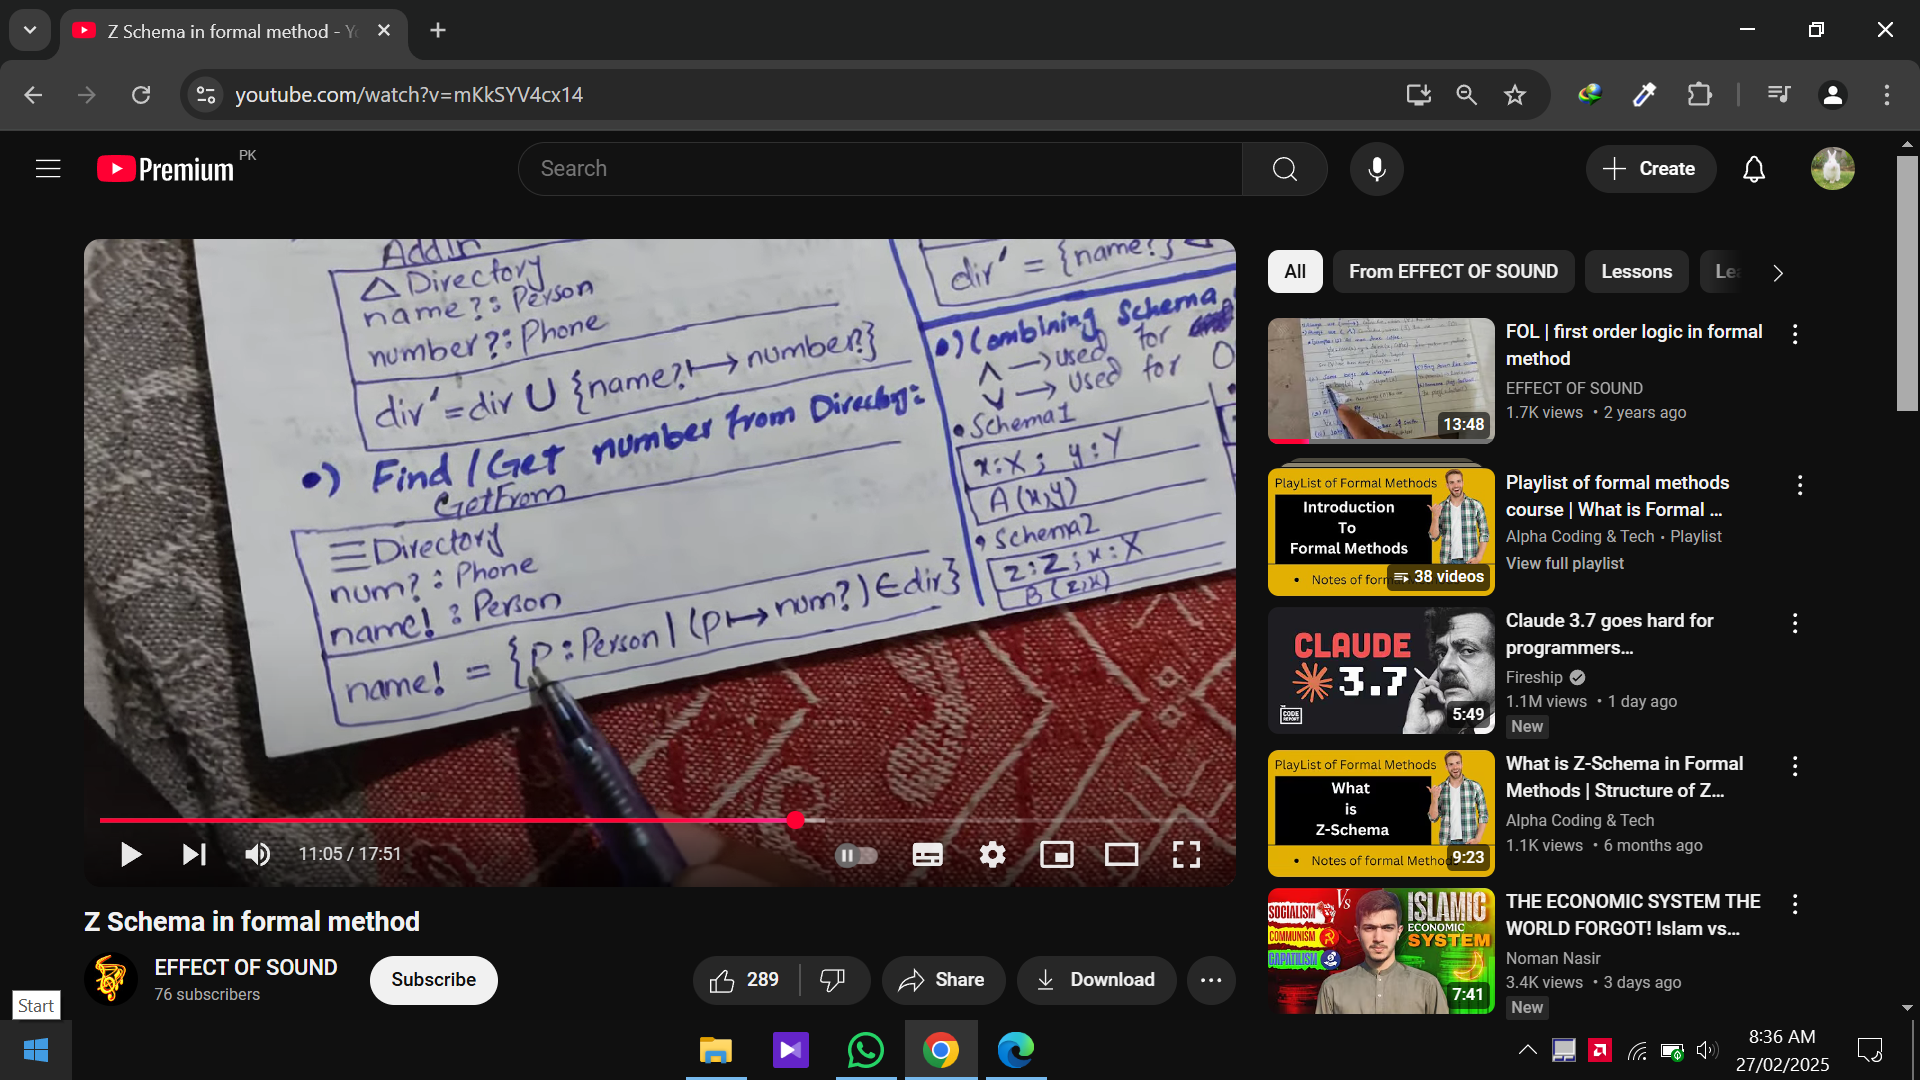 Z Schema in formal method - Yo
youtube.com/watch?v=mKkSYV4cx14
Premium PK
Search
Create
△ Directory
name? : Person
number? : Phone
dir' = dir ∪ {name? ↦ number?}
•) Find / Get number from Directory:
GetFrom
Ξ Directory
num? : Phone
name! : Person
name! = {p : Person | (p ↦ num?) ∈ dir}
dir' = {name?}
•) Combining Schema
∧ → used for
∨ → used for O
• Schema1
x : X ; y : Y
A (x,y)
• Schema2
z : Z ; x : X
B (z,x)
11:05 / 17:51
Z Schema in formal method
EFFECT OF SOUND
76 subscribers
Subscribe
289
Share
Download
All
From EFFECT OF SOUND
Lessons
Lea
13:48
FOL | first order logic in formal
method
EFFECT OF SOUND
1.7K views • 2 years ago
PlayList of Formal Methods
Introduction
To
Formal Methods
• Notes of form
38 videos
Playlist of formal methods
course | What is Formal ...
Alpha Coding & Tech • Playlist
View full playlist
CLAUDE
3.7
THE CODE REPORT
5:49
Claude 3.7 goes hard for
programmers...
Fireship
1.1M views • 1 day ago
New
PlayList of Formal Methods
What
is
Z-Schema
• Notes of formal Method
9:23
What is Z-Schema in Formal
Methods | Structure of Z...
Alpha Coding & Tech
1.1K views • 6 months ago
SOCIALISM
COMMUNISM
CAPATILISM
Vs
ISLAMIC
ECONOMIC
SYSTEM
7:41
THE ECONOMIC SYSTEM THE
WORLD FORGOT! Islam vs...
Noman Nasir
3.4K views • 3 days ago
New
Start
8:36 AM
27/02/2025